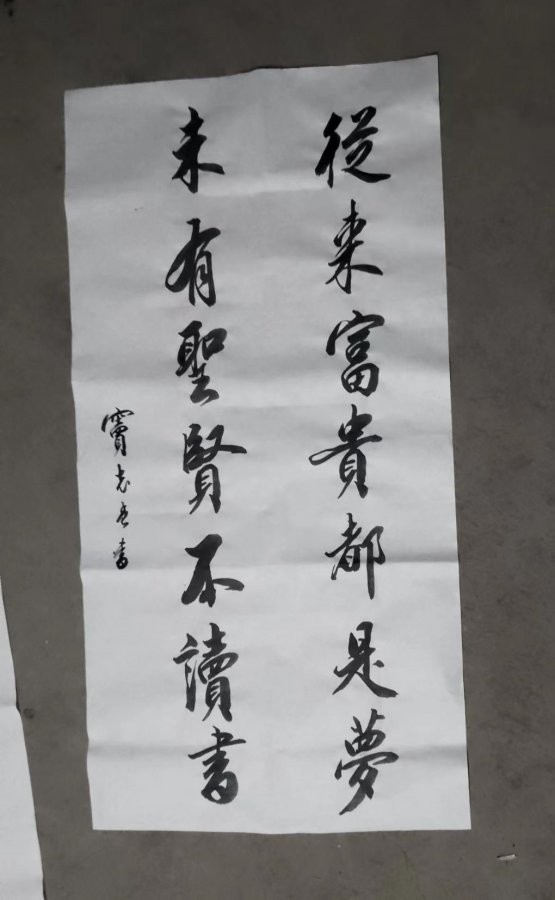 從来富貴都是夢
未有聖賢不讀書
竇志書